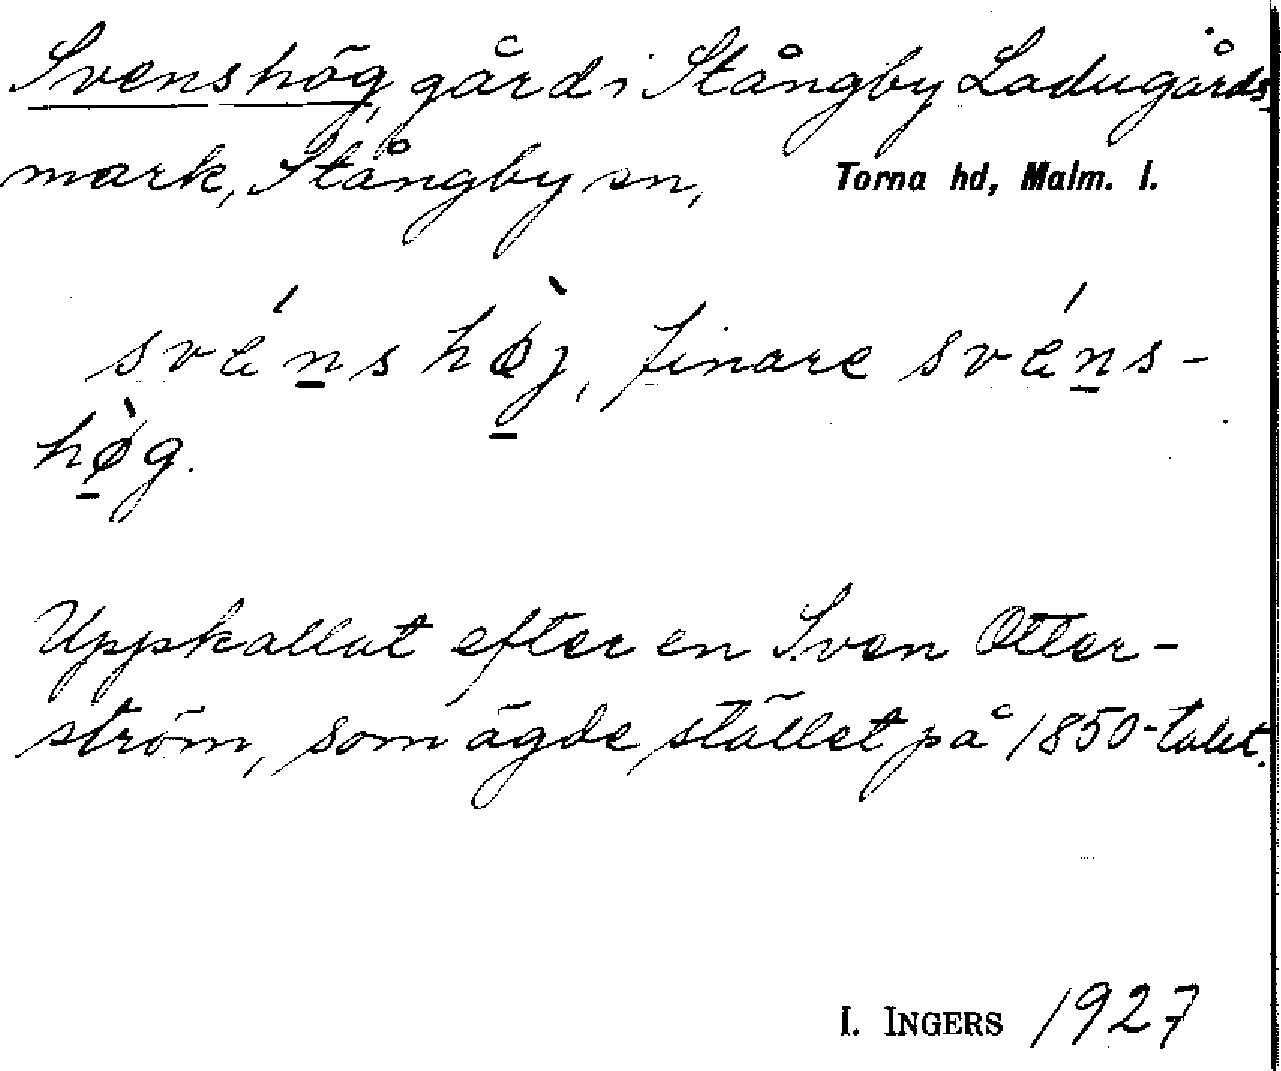 Svenshög, gård i Stångby Ladugårds
mark, Stångby sn, Torna hd, Malm. l.
svéns hø̀j, finare svéns-
hø̀g.
Uppkallat efter en Sven Otter-
ström, som ägde stället på 1850-talet.
I. INGERS 1927